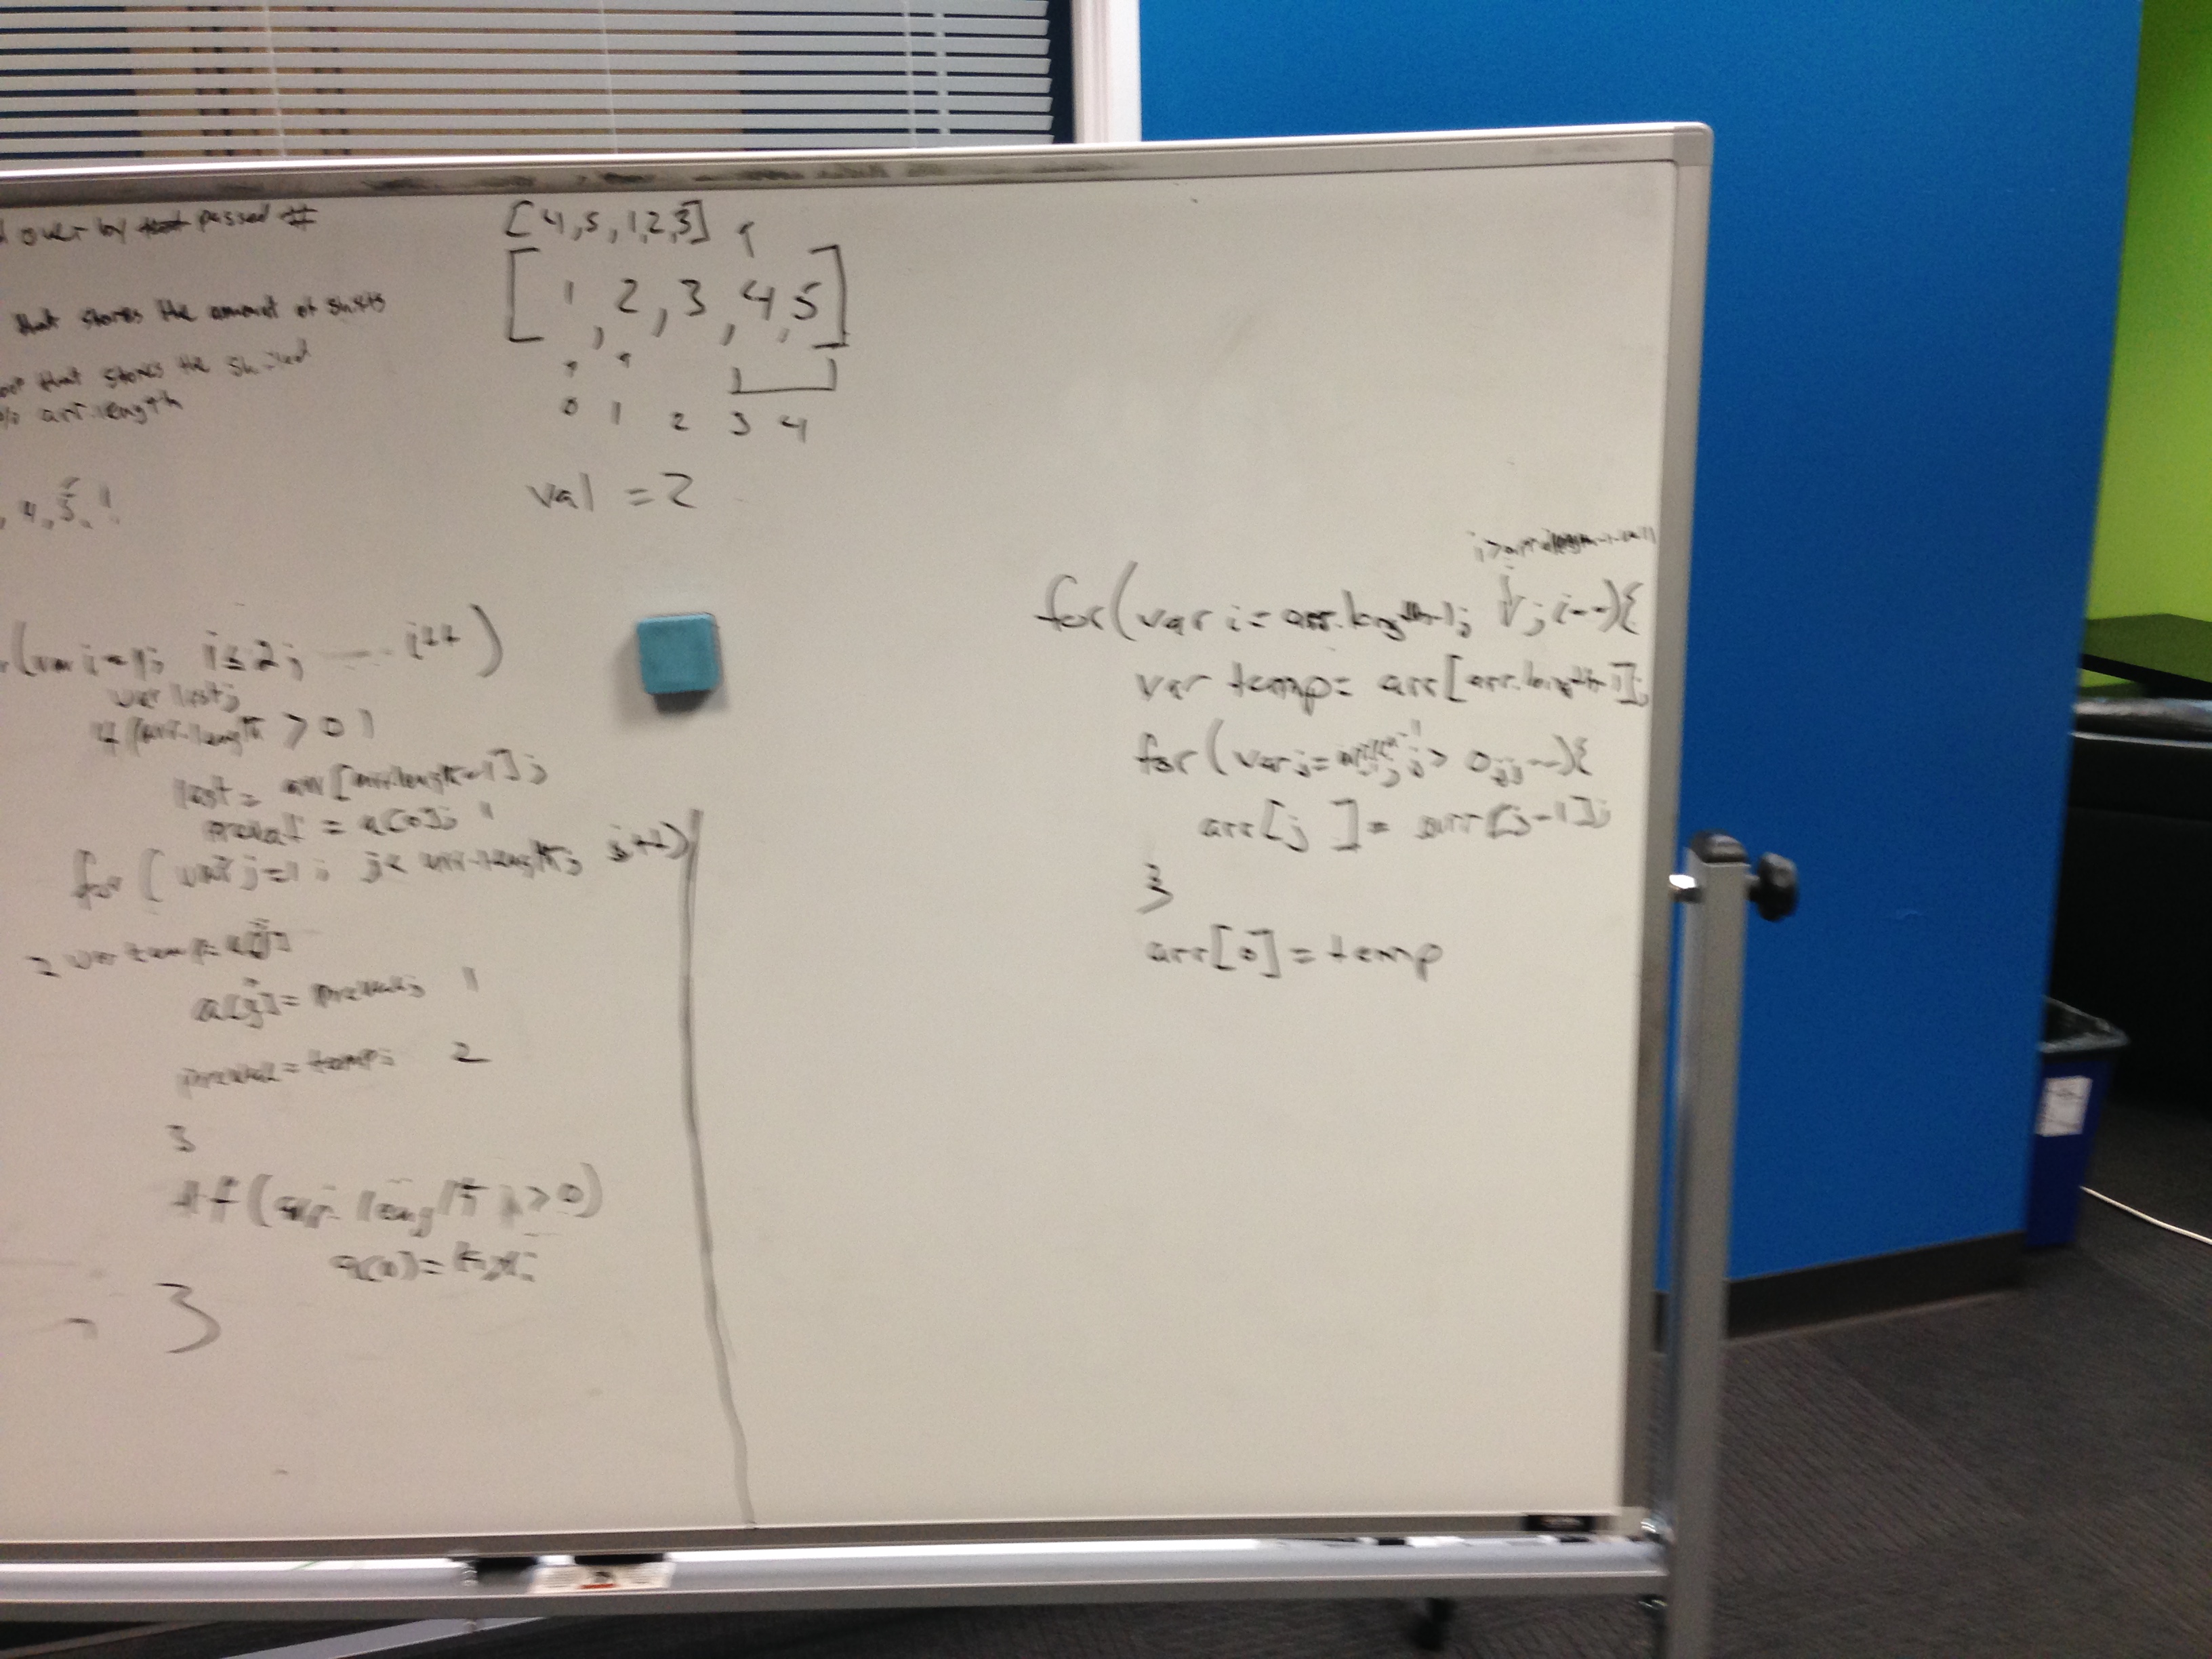 over by that passed #
that stores the amount of shifts
that stores the
% arr.length
, 4, 5, 1
[4,5,1,2,3]
[1,2,3,4,5]
0 1 2 3 4
val = 2
(var i=1; i≤2; i++)
var last;
if (arr.length > 0)
last = arr[arr.length-1];
preval = a[0]; 1
for (var j=1; j< arr.length; j++)
2 var temp = a[j]
a[j] = preval; 1
preval = temp; 2
}
if (arr.length > 0)
a[0] =
}
for(var i = arr.length-1; ; i--){
var temp = arr[arr.length-1];
for (var j = j > 0; j--){
arr[j] = arr[j-1];
}
arr[0] = temp